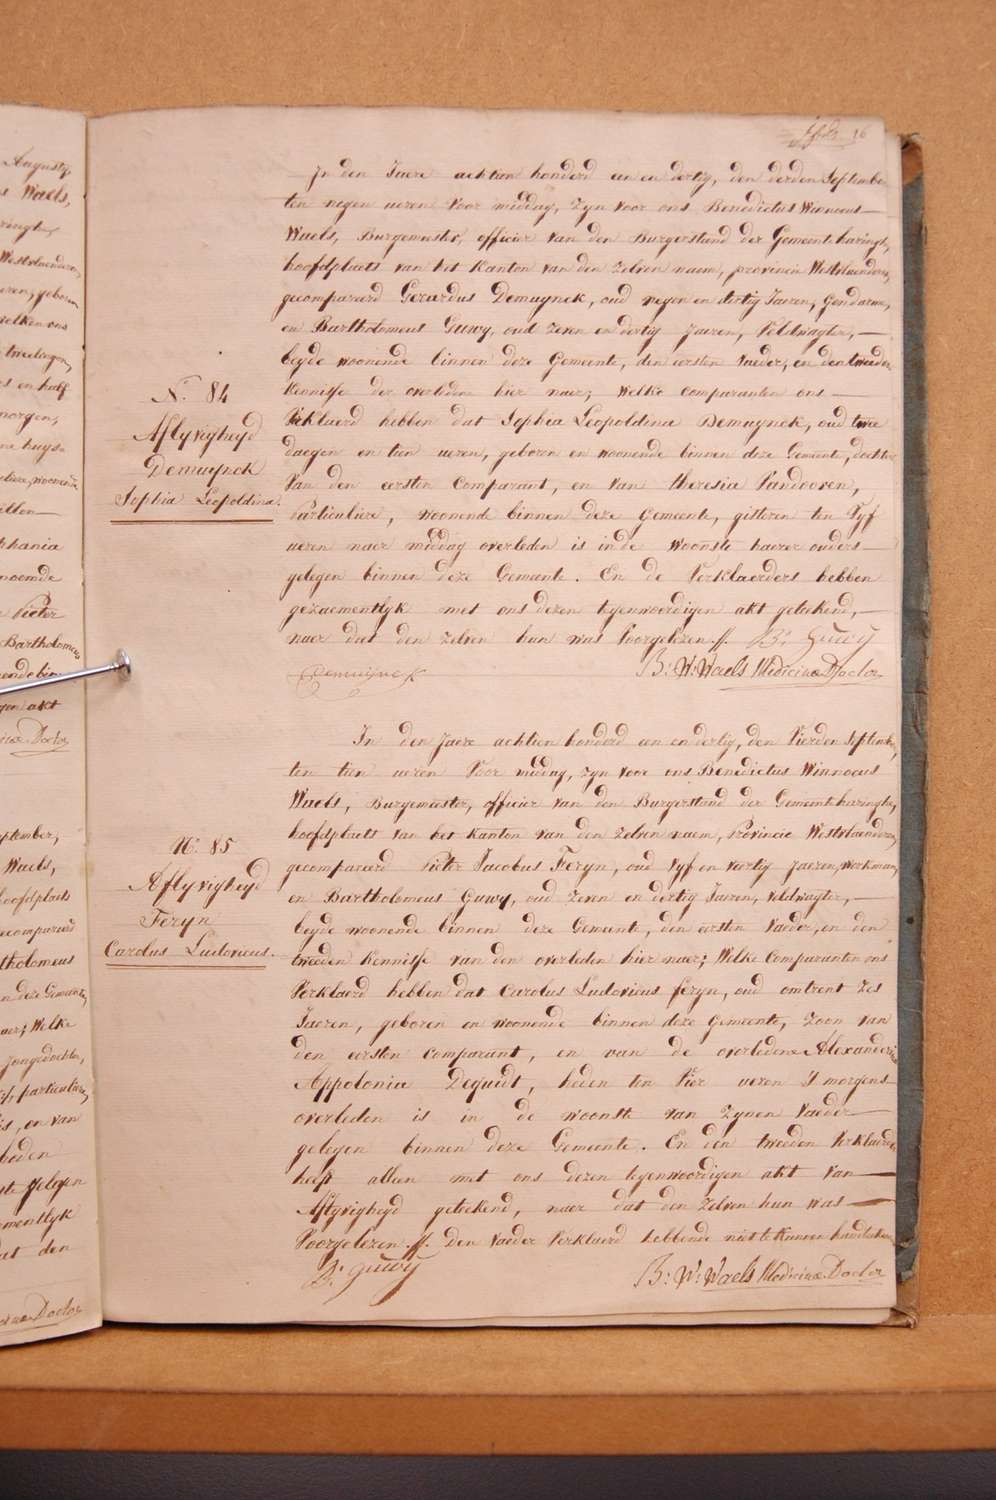 16
In den Jaere achtien honderd een en dertig, den derden September
ten negen ueren voor middag, zyn voor ons Benedictus Winnocus
Waels, Burgemeester, officier van den Burgerstand der Gemeente haringhe,
hoofdplaets van het Kanton van den zelven naem, provincie Westvlaenderen,
gecompareerd Gerardus Demuynck, oud negen en dertig Jaeren, Gendarme,
en Bartholomeus Guwy, oud zeven en dertig Jaeren, Veldwagter,
beyde woonende binnen deze Gemeente, den eersten vaeder, en den tweeden
Kennisse der overledene hier naer; Welke Comparanten ons
Verklaerd hebben dat Sophia Leopoldina Demuynck, oud twee
daegen en tien ueren, geboren en woonende binnen deze Gemeente, dochter
Van den eersten Comparant, en van Theresia Vandooren,
particuliere, woonende binnen deze Gemeente, gisteren ten Vyf
ueren naer middag overleden is in de woonste haerer ouders
gelegen binnen deze Gemeente. En de Verklaerders hebben
gezaementlyk met ons dezen tegenwoordigen akt geteekend,
naer dat den zelven hun was Voorgelezen.//. B: Guwy
Demuijnck B: W: Waels Medicinæ Doctor
N.° 84
Aflyvigheyd
Demuynck
Sophia Leopoldina.
In den Jaere achtien honderd een en dertig, den Vierden September,
ten tien ueren Voor middag, zyn voor ons Benedictus Winnocus
Waels, Burgemeester, officier van den Burgerstand der Gemeente haringhe,
hoofdplaets van het Kanton van den zelven naem, Provincie Westvlaenderen,
gecompareerd Pieter Jacobus Feryn, oud vyf en veertig Jaeren, werkman,
en Bartholomeus Guwy, oud zeven en dertig Jaeren, veldwagter,
beyde woonende binnen deze Gemeente, den eersten Vaeder, en den
tweeden Kennisse van den overleden hier naer; Welke Comparanten ons
Verklaerd hebben dat Carolus Ludovicus Feryn, oud omtrent zes
Jaeren, geboren en woonende binnen deze Gemeente, zoon van
den eersten Comparant, en van de overledene Alexandrina
Appolonia Dequidt, heden ten Vier ueren 's morgens
overleden is in de woonste van zynen Vaeder
gelegen binnen deze Gemeente. En den tweeden Verklaerder
heeft alleen met ons dezen tegenwoordigen akt van
Aflyvigheyd geteekend, naer dat den zelven hun was
Voorgelezen.//. den Vaeder Verklaerd hebbende niet te Kunnen handteekenen
B: Guwy B: W: Waels Medicinæ Doctor
N.° 85
Aflyvigheyd
Feryn
Carolus Ludovicus.